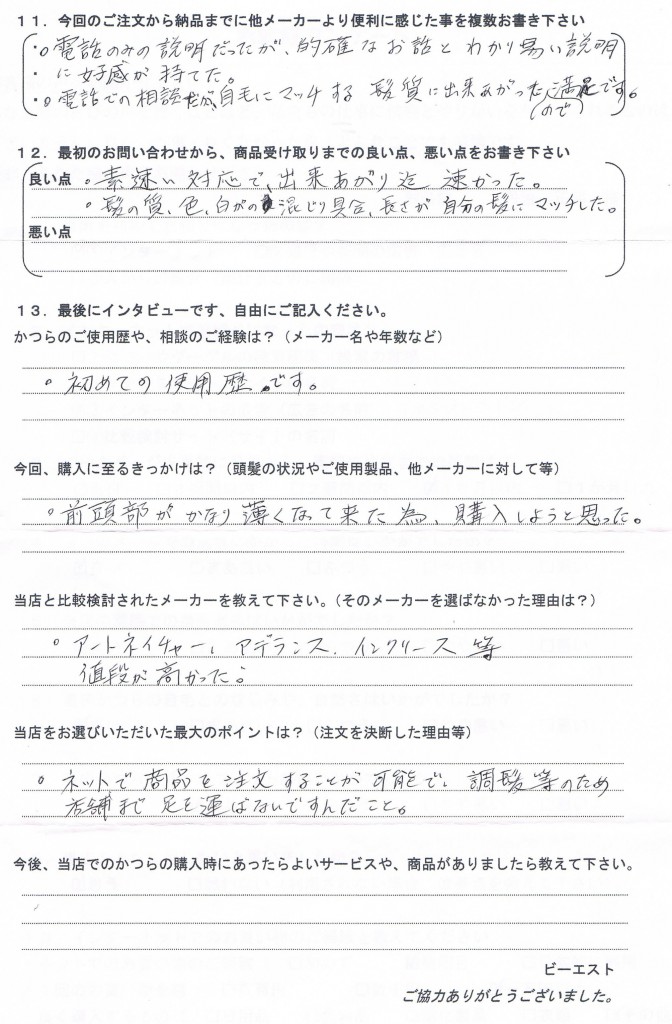 １１．今回のご注文から納品までに他メーカーより便利に感じた事を複数お書き下さい
・○電話のみの説明だったが、的確なお話とわかり易い説明
・に好感が持てた。
・○電話での相談だが、自毛にマッチする髪質に出来あがった(ので)満足です。
１２．最初のお問い合わせから、商品受け取りまでの良い点、悪い点をお書き下さい
良い点 ・素速い対応で、出来あがり迄速かった。
・髪の質、色、白がの混じり具合、長さが自分の髪にマッチした。
悪い点
１３．最後にインタビューです、自由にご記入ください。
かつらのご使用歴や、相談のご経験は？（メーカー名や年数など）
○初めての使用歴です。
今回、購入に至るきっかけは？（頭髪の状況やご使用製品、他メーカーに対して等）
○前頭部がかなり薄くなって来た為、購入しようと思った。
当店と比較検討されたメーカーを教えて下さい。（そのメーカーを選ばなかった理由は？）
○アートネイチャー、アデランス、インクリース等
値段が高かった。
当店をお選びいただいた最大のポイントは？（注文を決断した理由等）
○ネットで商品を注文することが可能で、調髪等のため
店舗まで足を運ばないですんだこと。
今後、当店でのかつらの購入時にあったらよいサービスや、商品がありましたら教えて下さい。
ビーエスト
ご協力ありがとうございました。